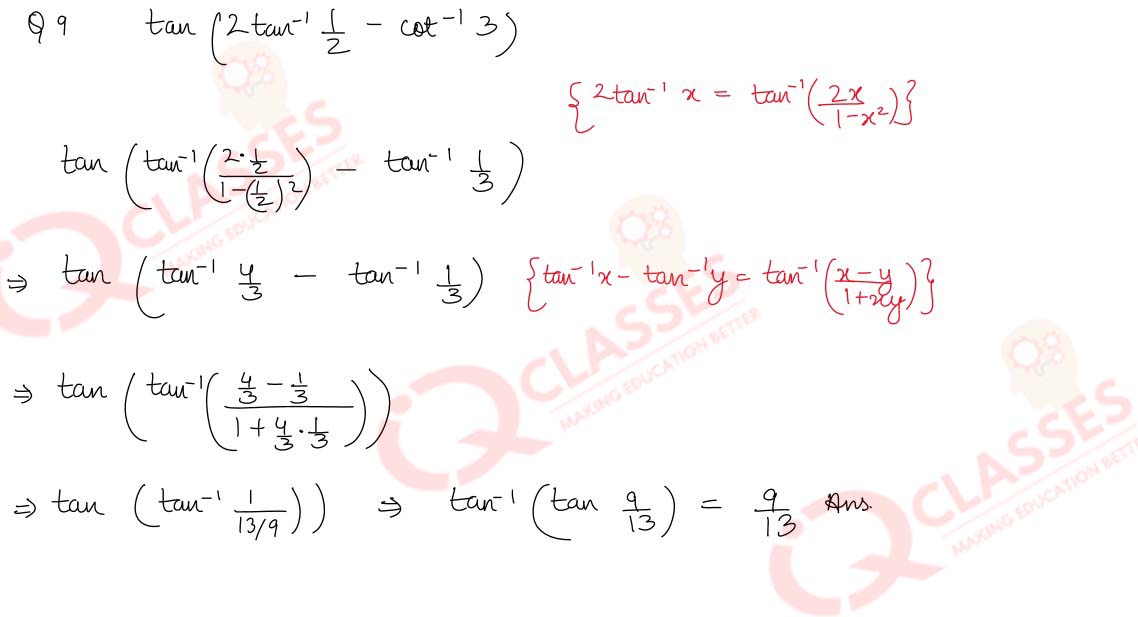 Q 9 tan (2 tan⁻¹ 1/2 − cot⁻¹ 3)
{2tan⁻¹ x = tan⁻¹(2x/(1−x²))}
tan (tan⁻¹((2·1/2)/(1−(1/2)²)) − tan⁻¹ 1/3)
⇒ tan (tan⁻¹ 4/3 − tan⁻¹ 1/3) {tan⁻¹x − tan⁻¹y = tan⁻¹((x−y)/(1+xy))}
⇒ tan (tan⁻¹((4/3 − 1/3)/(1 + 4/3 · 1/3)))
⇒ tan (tan⁻¹ 1/(13/9))) ⇒ tan⁻¹ (tan 9/13) = 9/13 Ans.
IQ CLASSES
MAKING EDUCATION BETTER
IQ CLASSES
MAKING EDUCATION BETTER
IQ CLASSES
MAKING EDUCATION BETTER